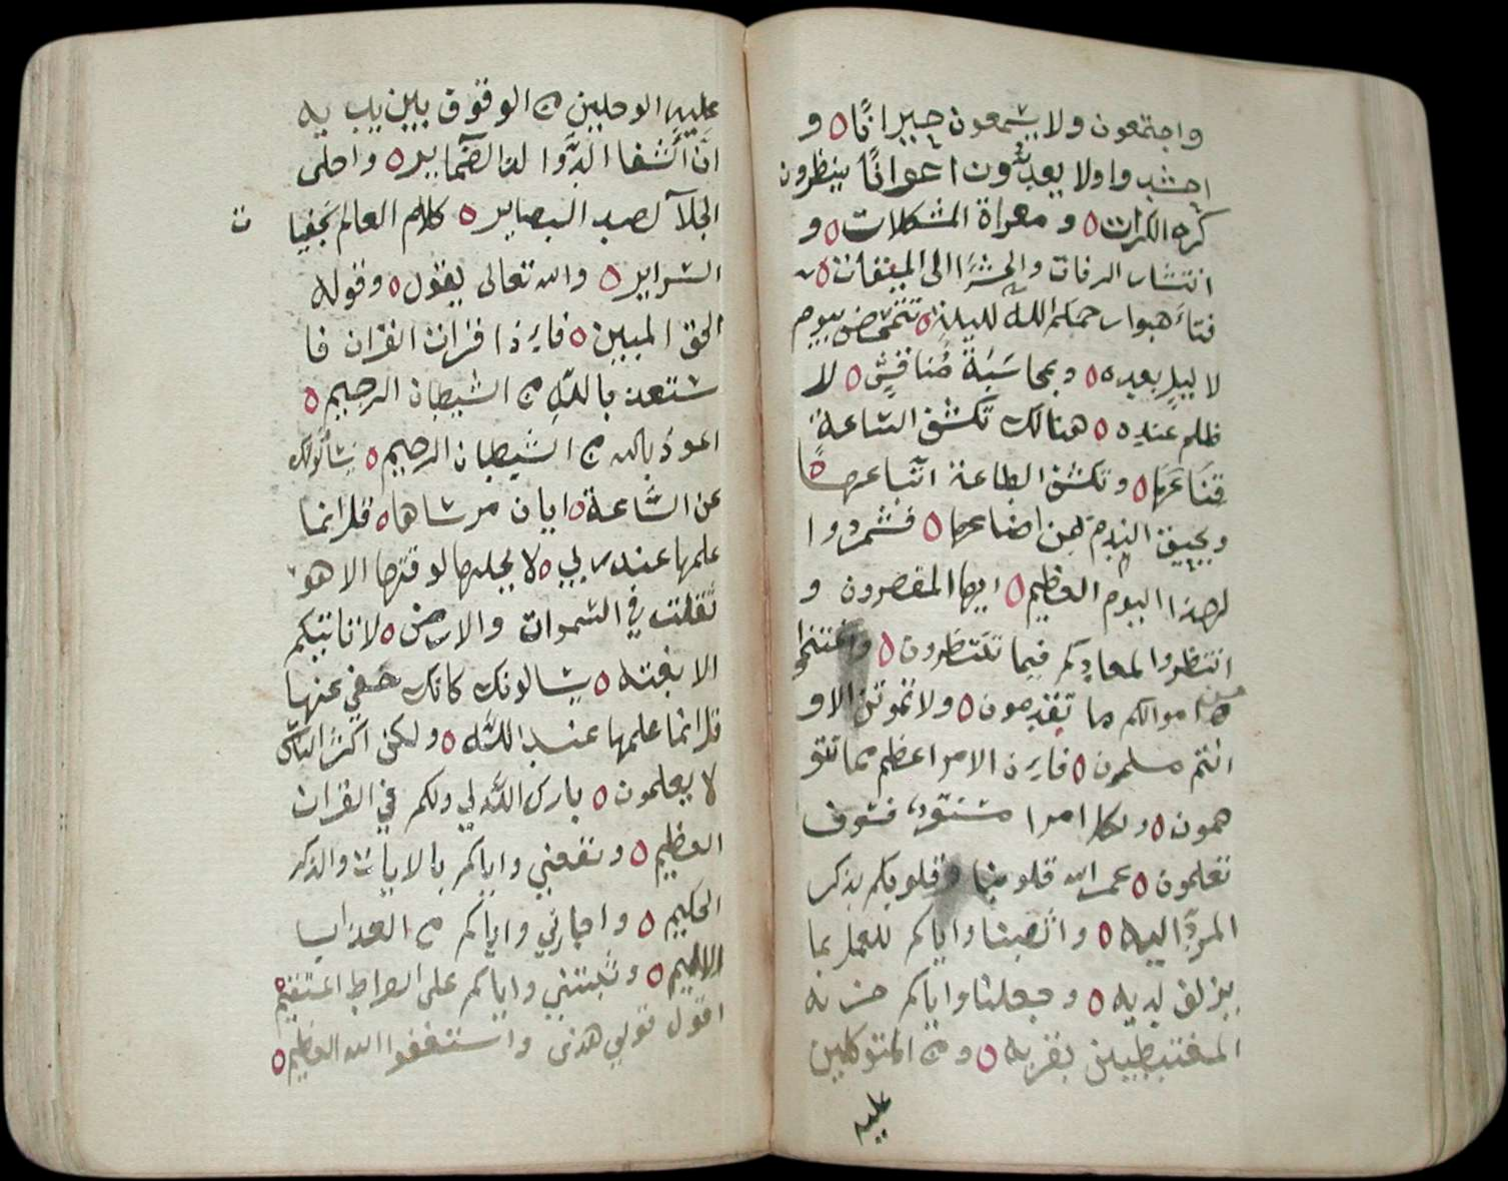 واجتمعون ولا يسمعون جيرانًا ٥ و
احشدوا ولا يعدون اعوانًا ينظرون
كره الكرات ٥ و معراة المشكلات ٥ و
انتشار الرفات والحشر الى الميقات ٥
فتاهبوا رحمكم الله لليلة ٥ تتمخض بيوم
لا ليل بعده ٥ وبمحاسبة مُناقش ٥ لا
ظلم عنده ٥ هنالك تكشف الساعة
قناعها ٥ وتكشف الطاعة اتباعها ٥
ويحيق الندم من اضاعها ٥ فشمروا
لهذا اليوم العظيم ٥ ايها المقصرون و
انتظروا لمعادكم فيما تنتظرون ٥ واغتنموا
من اموالكم ما تقدمون ٥ ولا تموتن الا و
انتم مسلمون ٥ فان الامر اعظم مما تتو
همون ٥ ولكل امرا مستقر، فسوف
تعلمون ٥ عمر الله قلوبنا وقلوبكم بذكر
المردّ اليه ٥ وانصبنا واياكم للعمل بما
يزلف لديه ٥ وجعلنا واياكم حزبه
المغتبطين بقربه ٥ ومن المتوكلين
عليه
عليه الوجلين من الوقوف بين يديه
انّ اشفا الدوا لدا الضماير ٥ واجلى
الجلآ لصد البصاير ٥ كلام العالم بخفيا
ت
السراير ٥ والله تعالى يقول ٥ وقوله
الحق المبين ٥ فاذا قرات القران فا
ستعذ بالله من الشيطان الرجيم ٥
اعوذ بالله من الشيطان الرجيم ٥ يسألونك
عن الساعة ٥ ايان مرساها ٥ قل انما
علمها عند ربي ٥ لا يجليها لوقتها الا هو
ثقلت في السموات والارض ٥ لا تاتيكم
الا بغته ٥ يسالونك كانك حفي عنها
قل انما علمها عند الله ٥ ولكن اكثر الناس
لا يعلمون ٥ بارك الله لي ولكم في القران
العظيم ٥ ونفعني واياكم بالايات والذكر
الحكيم ٥ واجارني واياكم من العذاب
الاليم ٥ وثبتني واياكم على الصراط المستقيم ٥
اقول قولي هذى واستغفروا الله العظيم ٥